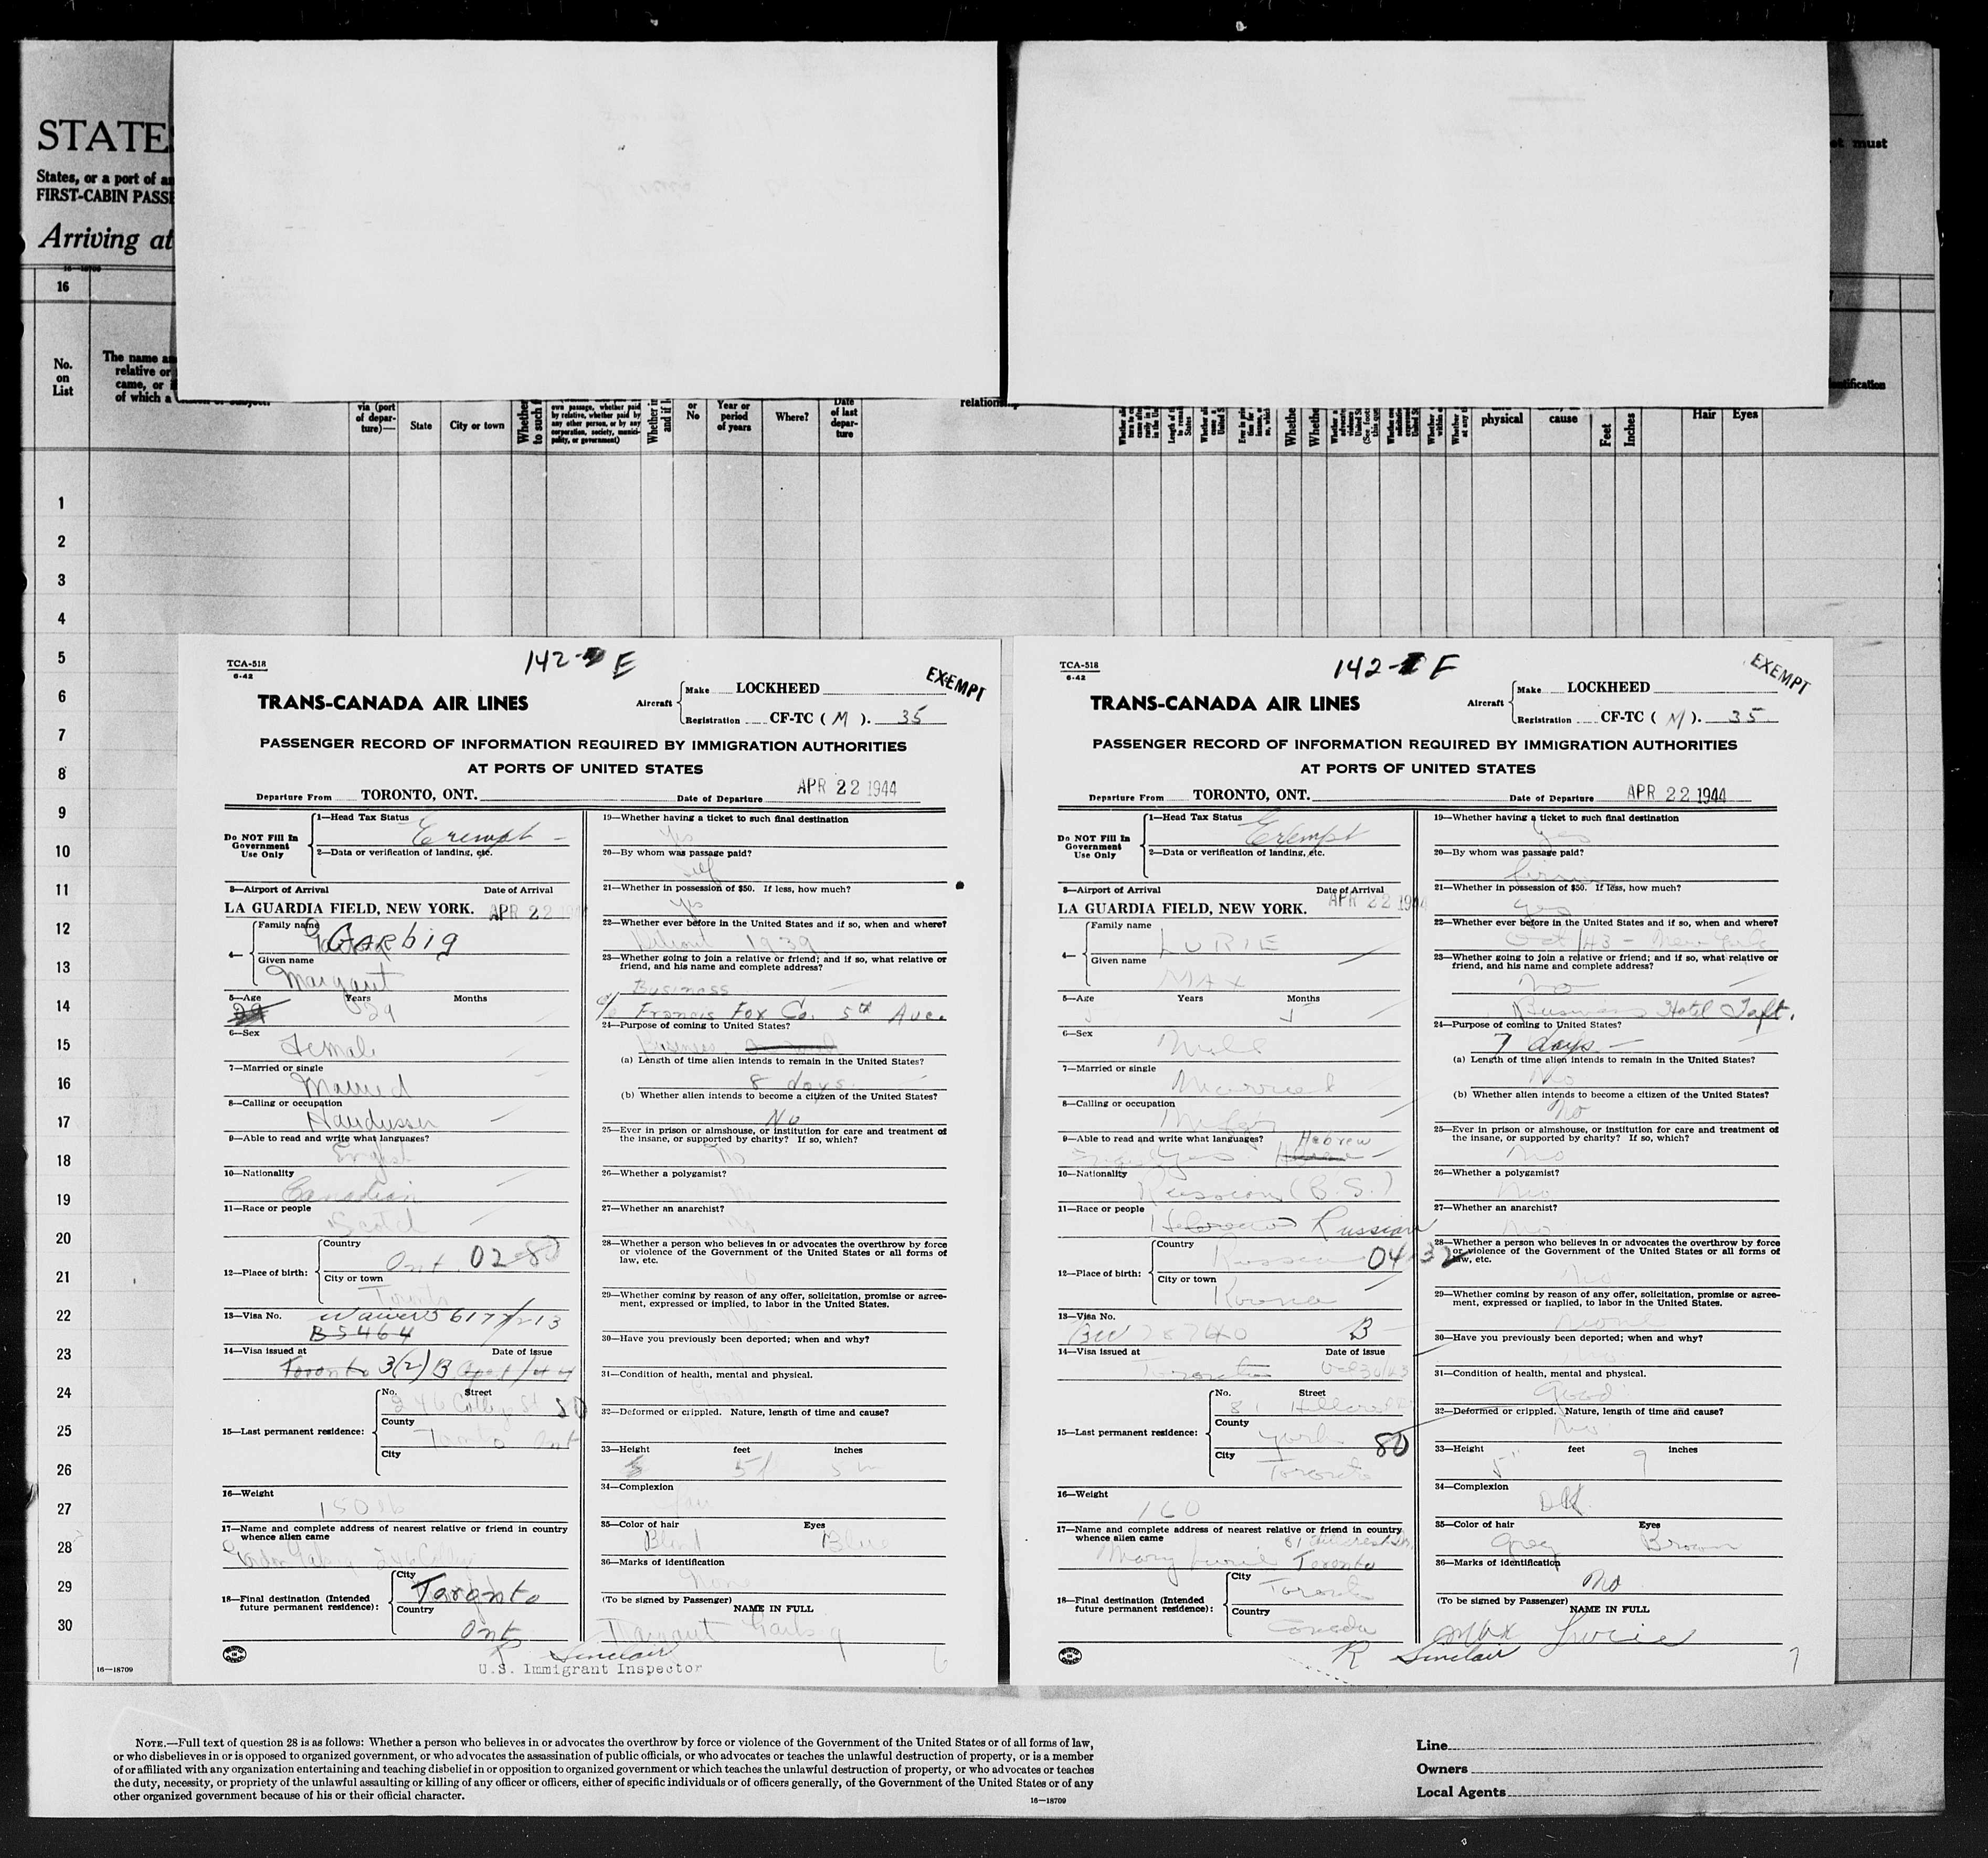 STATES
States, or a port of an
FIRST-CABIN PASSE
Arriving at
16—18709
16
No.
on
List
The name an
relative or
came, or i
of which a
via (port
of depar-
ture)—
State
City or town
Whether
to such f
own passage, whether paid
by relative, whether paid by
any other person, or by any
corporation, society, munici-
pality, or government)
Whether in
and if l
or
No
Year or
period
of years
Where?
Date
of last
depar-
ture
relationship
Whether
Whether
physical
cause
Feet
Inches
Hair
Eyes
must
1
2
3
4
5
6
7
8
9
10
11
12
13
14
15
16
17
18
19
20
21
22
23
24
25
26
27
28
29
30
16—18709
TCA-518
6-42
142- E
EXEMPT
TRANS-CANADA AIR LINES
Aircraft
Make LOCKHEED
Registration CF-TC ( M ). 35
PASSENGER RECORD OF INFORMATION REQUIRED BY IMMIGRATION AUTHORITIES
AT PORTS OF UNITED STATES
Departure From TORONTO, ONT.
Date of Departure APR 22 1944
Do NOT Fill In
Government
Use Only
1—Head Tax Status
Exempt -
2—Data or verification of landing, etc.
3—Airport of Arrival Date of Arrival
LA GUARDIA FIELD, NEW YORK. APR 22 1944
4— Family name
GARbig
Given name
Margaret
5—Age Years Months
29 29
6—Sex
Female
7—Married or single
Married
8—Calling or occupation
Hairdresser
9—Able to read and write what languages?
English
10—Nationality
Canadian
11—Race or people
Scotch
12—Place of birth:
Country
Ont. 02-80
City or town
Toronto
13—Visa No. Waiver 56177/213
B5464
14—Visa issued at Date of issue
Toronto 3(2) B Apr 1/44
15—Last permanent residence:
No. Street
246 College St 80
County
Toronto Ont
City
16—Weight
150 lb
17—Name and complete address of nearest relative or friend in country
whence alien came
Gordon Garbig 246 College
18—Final destination (Intended
future permanent residence):
City
Toronto
Country
Ont
19—Whether having a ticket to such final destination
Yes
20—By whom was passage paid?
self
21—Whether in possession of $50. If less, how much?
yes
22—Whether ever before in the United States and if so, when and where?
1939
23—Whether going to join a relative or friend; and if so, what relative or
friend, and his name and complete address?
Business
c/o Francis Fox Co. 5th Ave.
24—Purpose of coming to United States?
Business
(a) Length of time alien intends to remain in the United States?
8 days
(b) Whether alien intends to become a citizen of the United States?
No
25—Ever in prison or almshouse, or institution for care and treatment of
the insane, or supported by charity? If so, which?
No
26—Whether a polygamist?
No
27—Whether an anarchist?
No
28—Whether a person who believes in or advocates the overthrow by force
or violence of the Government of the United States or all forms of
law, etc.
29—Whether coming by reason of any offer, solicitation, promise or agree-
ment, expressed or implied, to labor in the United States.
30—Have you previously been deported; when and why?
31—Condition of health, mental and physical.
32—Deformed or crippled. Nature, length of time and cause?
33—Height feet inches
5 5
34—Complexion
fair
35—Color of hair Eyes
Blond Blue
36—Marks of identification
None
(To be signed by Passenger) NAME IN FULL
Margaret Garbig
R Sinclair
U.S. Immigrant Inspector
6
TCA-518
6-42
142- F
EXEMPT
TRANS-CANADA AIR LINES
Aircraft
Make LOCKHEED
Registration CF-TC ( M ). 35
PASSENGER RECORD OF INFORMATION REQUIRED BY IMMIGRATION AUTHORITIES
AT PORTS OF UNITED STATES
Departure From TORONTO, ONT.
Date of Departure APR 22 1944
Do NOT Fill In
Government
Use Only
1—Head Tax Status
Exempt
2—Data or verification of landing, etc.
3—Airport of Arrival Date of Arrival
LA GUARDIA FIELD, NEW YORK. APR 22 1944
4— Family name
LURIE
Given name
MAX
5—Age Years Months
6—Sex
Male
7—Married or single
Married
8—Calling or occupation
Mnfgr
9—Able to read and write what languages? Hebrew
yes
10—Nationality
Russian (B.S.)
11—Race or people
Hebrew Russian
12—Place of birth:
Country
Russia 04-32
City or town
Kovna
13—Visa No.
BW 28740 B
14—Visa issued at Date of issue
Toronto Oct 30/43
15—Last permanent residence:
No. Street
81 Hillcrest
County
York 80
City
Toronto
16—Weight
160
17—Name and complete address of nearest relative or friend in country
whence alien came 81 Hillcrest Dr.
Mary Lurie Toronto
18—Final destination (Intended
future permanent residence):
City
Toronto
Country
Canada
19—Whether having a ticket to such final destination
yes
20—By whom was passage paid?
firm
21—Whether in possession of $50. If less, how much?
yes
22—Whether ever before in the United States and if so, when and where?
Oct/43 - New York
23—Whether going to join a relative or friend; and if so, what relative or
friend, and his name and complete address?
No
Business Hotel Taft.
24—Purpose of coming to United States?
7 days -
(a) Length of time alien intends to remain in the United States?
No
(b) Whether alien intends to become a citizen of the United States?
No
25—Ever in prison or almshouse, or institution for care and treatment of
the insane, or supported by charity? If so, which?
No
26—Whether a polygamist?
No
27—Whether an anarchist?
No
28—Whether a person who believes in or advocates the overthrow by force
or violence of the Government of the United States or all forms of
law, etc.
No
29—Whether coming by reason of any offer, solicitation, promise or agree-
ment, expressed or implied, to labor in the United States.
None
30—Have you previously been deported; when and why?
No
31—Condition of health, mental and physical.
Good
32—Deformed or crippled. Nature, length of time and cause?
No
33—Height feet inches
5 9
34—Complexion
DK
35—Color of hair Eyes
Grey Brown
36—Marks of identification
No
(To be signed by Passenger) NAME IN FULL
Max Lurie
R Sinclair
7
NOTE.—Full text of question 28 is as follows: Whether a person who believes in or advocates the overthrow by force or violence of the Government of the United States or of all forms of law,
or who disbelieves in or is opposed to organized government, or who advocates the assassination of public officials, or who advocates or teaches the unlawful destruction of property, or is a member
of or affiliated with any organization entertaining and teaching disbelief in or opposition to organized government or which teaches the unlawful destruction of property, or who advocates or teaches
the duty, necessity, or propriety of the unlawful assaulting or killing of any officer or officers, either of specific individuals or of officers generally, of the Government of the United States or of any
other organized government because of his or their official character.
16—18709
Line
Owners
Local Agents